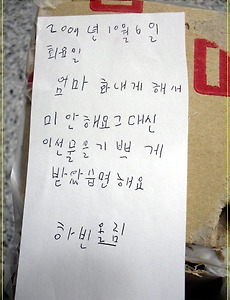 2009년 10월 6일
화요일
엄마 화내게 해서
미안해요 그대신
이선물을기쁘게
받았으면해요
하빈올림